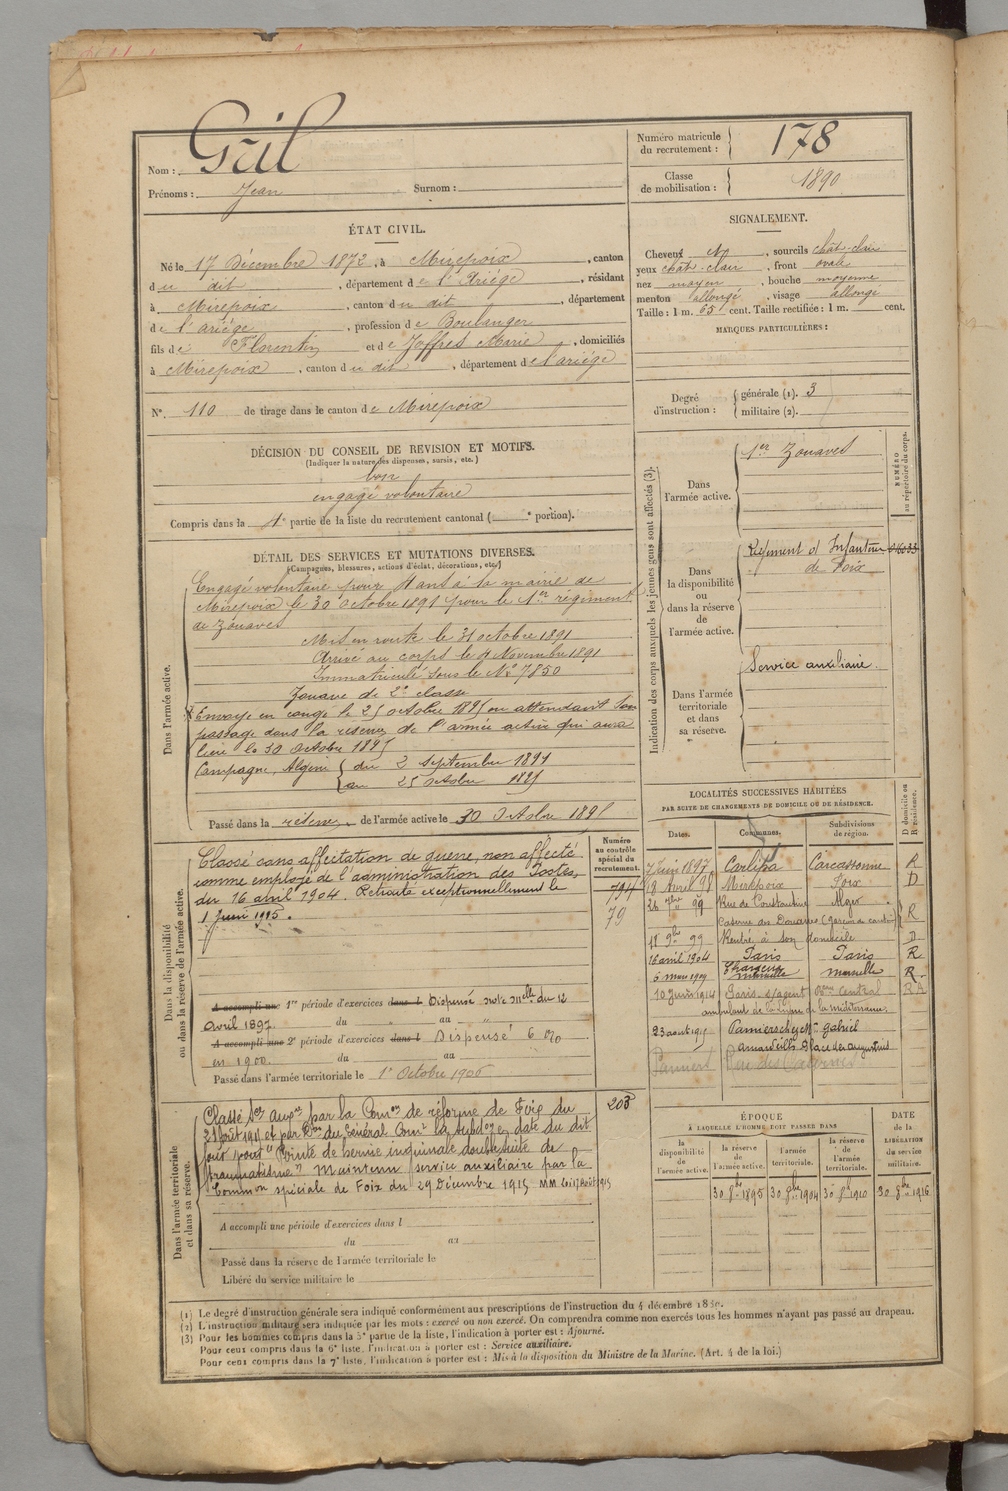 Nom : Gril
Prénoms : Jean Surnom :
Numéro matricule du recrutement : 178
Classe de mobilisation : 1890
ÉTAT CIVIL.
Né le 17 Décembre 1872, à Mirepoix, canton
du dit, département de l'Ariége, résidant
à Mirepoix, canton du dit, département
de l'ariége, profession de Boulanger
fils de Florentin et de Joffres Marie, domiciliés
à Mirepoix, canton du dit, département de l'ariége
N°. 110 de tirage dans le canton de Mirepoix
SIGNALEMENT.
Cheveux , sourcils chât-clair
yeux chât-clair, front ovale
nez moyen, bouche moyenne
menton allongé, visage allongé
Taille : 1 m. 65 cent. Taille rectifiée : 1 m. cent.
MARQUES PARTICULIÈRES :
Degré d'instruction : générale (1). 3
militaire (2).
DÉCISION DU CONSEIL DE REVISION ET MOTIFS.
(Indiquer la nature des dispenses, sursis, etc.)
bon
engagé volontaire
Compris dans la 4e partie de la liste du recrutement cantonal ( e portion).
DÉTAIL DES SERVICES ET MUTATIONS DIVERSES.
(Campagnes, blessures, actions d'éclat, décorations, etc.)
Dans l'armée active.
Engagé volontaire pour 4 ans à la mairie de
Mirepoix le 30 octobre 1891 pour le 1er régiment
de Zouaves
Mis en route le 31 octobre 1891
Arrivé au corps le 4 Novembre 1891
Immatriculé sous le N° 7850
Zouave de 2e classe
Envoyé en congé le 25 octobre 1895 en attendant son
passage dans la réserve de l'armée active qui aura
lieu le 30 octobre 1895
Campagne, Algérie du 2 septembre 1891
au 25 octobre 1895
Passé dans la réserve de l'armée active le 30 Octobre 1895
Indication des corps auxquels les jeunes gens sont affectés (3).
NUMÉRO au répertoire du corps.
Dans l'armée active.
1er Zouaves
Dans la disponibilité ou dans la réserve de l'armée active.
Régiment d'Infanterie
de Foix
Dans l'armée territoriale et dans sa réserve.
Service auxiliaire.
LOCALITÉS SUCCESSIVES HABITÉES
PAR SUITE DE CHANGEMENTS DE DOMICILE OU DE RÉSIDENCE.
Dates. Communes. Subdivisions de région. D domicile ou R résidence.
7 Juin 1897 Carlipa Carcassonne R
19 Avril 98 Mirepoix Foix D
99 Rue de Constantine Alger
Caserne des Douanes R
99 Rentré à son domicile D
16 avril 1904 Paris Paris R
6 mars 1909 Marseille R
10 Juin 1914 Paris central
ambulant de la ligne de la méditerranée
23 août 1915 Pamiers Gabriel
Place des augustins
Pamiers Rue des
Dans la disponibilité ou dans la réserve de l'armée active.
Numéro au contrôle spécial du recrutement.
794
79
Classé sans affectation de guerre, non affecté
comme employé de l'administration des Postes,
du 16 avril 1904. Retraité exceptionnellement le
1 Juin 1915.
A accompli une 1re période d'exercices dans l Dispensé note du 12
avril 1897. du au
A accompli une 2e période d'exercices dans l Dispensé 6 %
en 1900. du au
Passé dans l'armée territoriale le 1er Octobre 1906
Dans l'armée territoriale et dans sa réserve.
203
Classé par la de réforme de Foix du
Août 1915 et par du Général la en date du dit
jour pour "Pointe de hernie inguinale double suite de
traumatisme" Maintenu service auxiliaire par la
spéciale de Foix du 29 Décembre 1915
A accompli une période d'exercices dans l
du au
Passé dans la réserve de l'armée territoriale le
Libéré du service militaire le
ÉPOQUE
À LAQUELLE L'HOMME DOIT PASSER DANS
la disponibilité de l'armée active. la réserve de l'armée active. l'armée territoriale. la réserve de l'armée territoriale.
DATE de la LIBÉRATION du service militaire.
30 8bre 1895 30 8bre 1904 30 8b 1910 30 8b 1916
(1) Le degré d'instruction générale sera indiqué conformément aux prescriptions de l'instruction du 4 décembre 1889.
(2) L'instruction militaire sera indiquée par les mots : exercé ou non exercé. On comprendra comme non exercés tous les hommes n'ayant pas passé au drapeau.
(3) Pour les hommes compris dans la 5e partie de la liste, l'indication à porter est : Ajourné.
Pour ceux compris dans la 6e liste, l'indication à porter est : Service auxiliaire.
Pour ceux compris dans la 7e liste, l'indication à porter est : Mis à la disposition du Ministre de la Marine. (Art. 4 de la loi.)